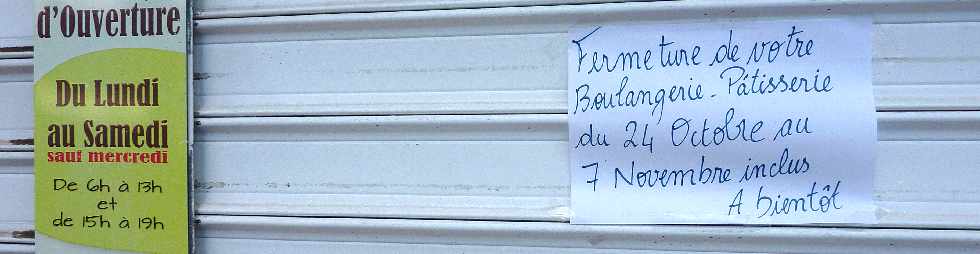 d'Ouverture
Du Lundi
au Samedi
sauf mercredi
De 6h à 13h
et
de 15h à 19h
Fermeture de votre
Boulangerie - Pâtisserie
du 24 Octobre au
7 Novembre inclus
A bientôt